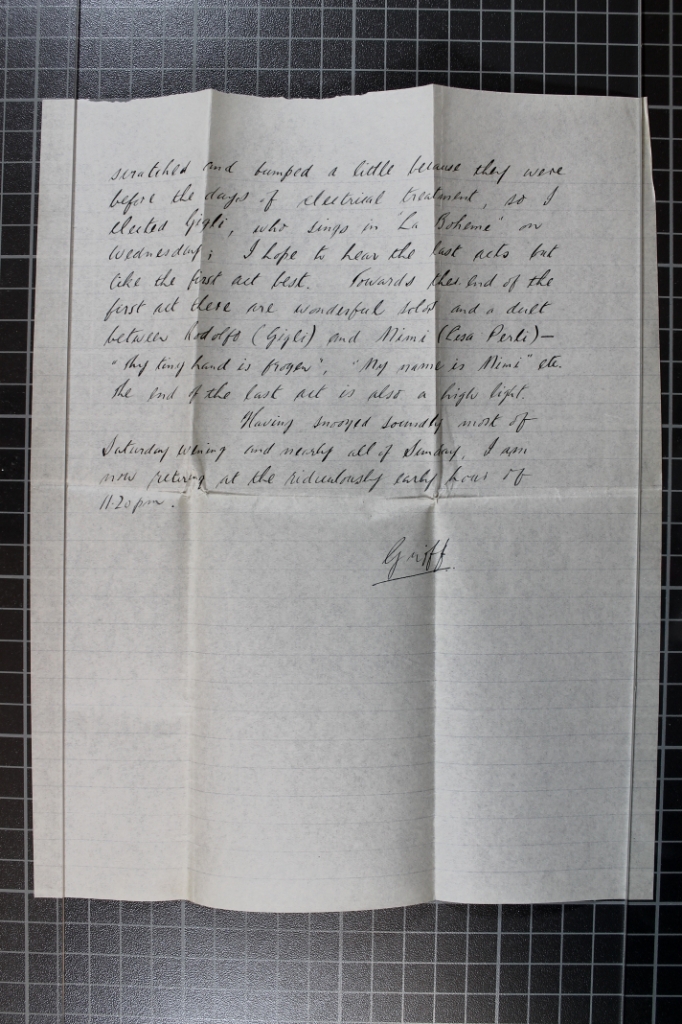 scratched and bumped a little because they were
before the days of electrical treatment, so I
elected Gigli, who sings in "La Boheme" on
Wednesday; I hope to hear the last acts but
like the first act best. Towards the end of the
first act there are wonderful solos and a duet
between Rodolfo (Gigli) and Mimi (Cesa Perli) —
"thy tiny hand is frozen", "My name is Mimi" etc.
the end of the last act is also a high light.
Having snoozed soundly most of
Saturday evening and nearly all of Sunday, I am
now retiring at the ridiculously early hour of
11.20 pm.
Griff.